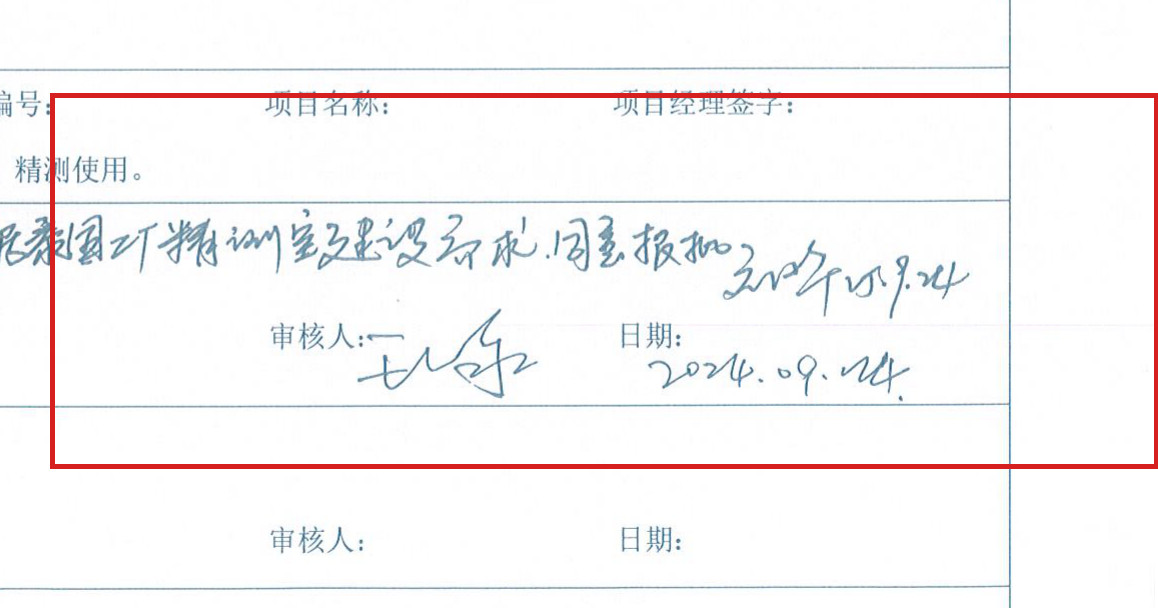 编号: 项目名称: 项目经理签字:
精测使用。
泰国工厂精测室建设需求.同意报批
审核人: 日期:
2024.09.24.
审核人: 日期: